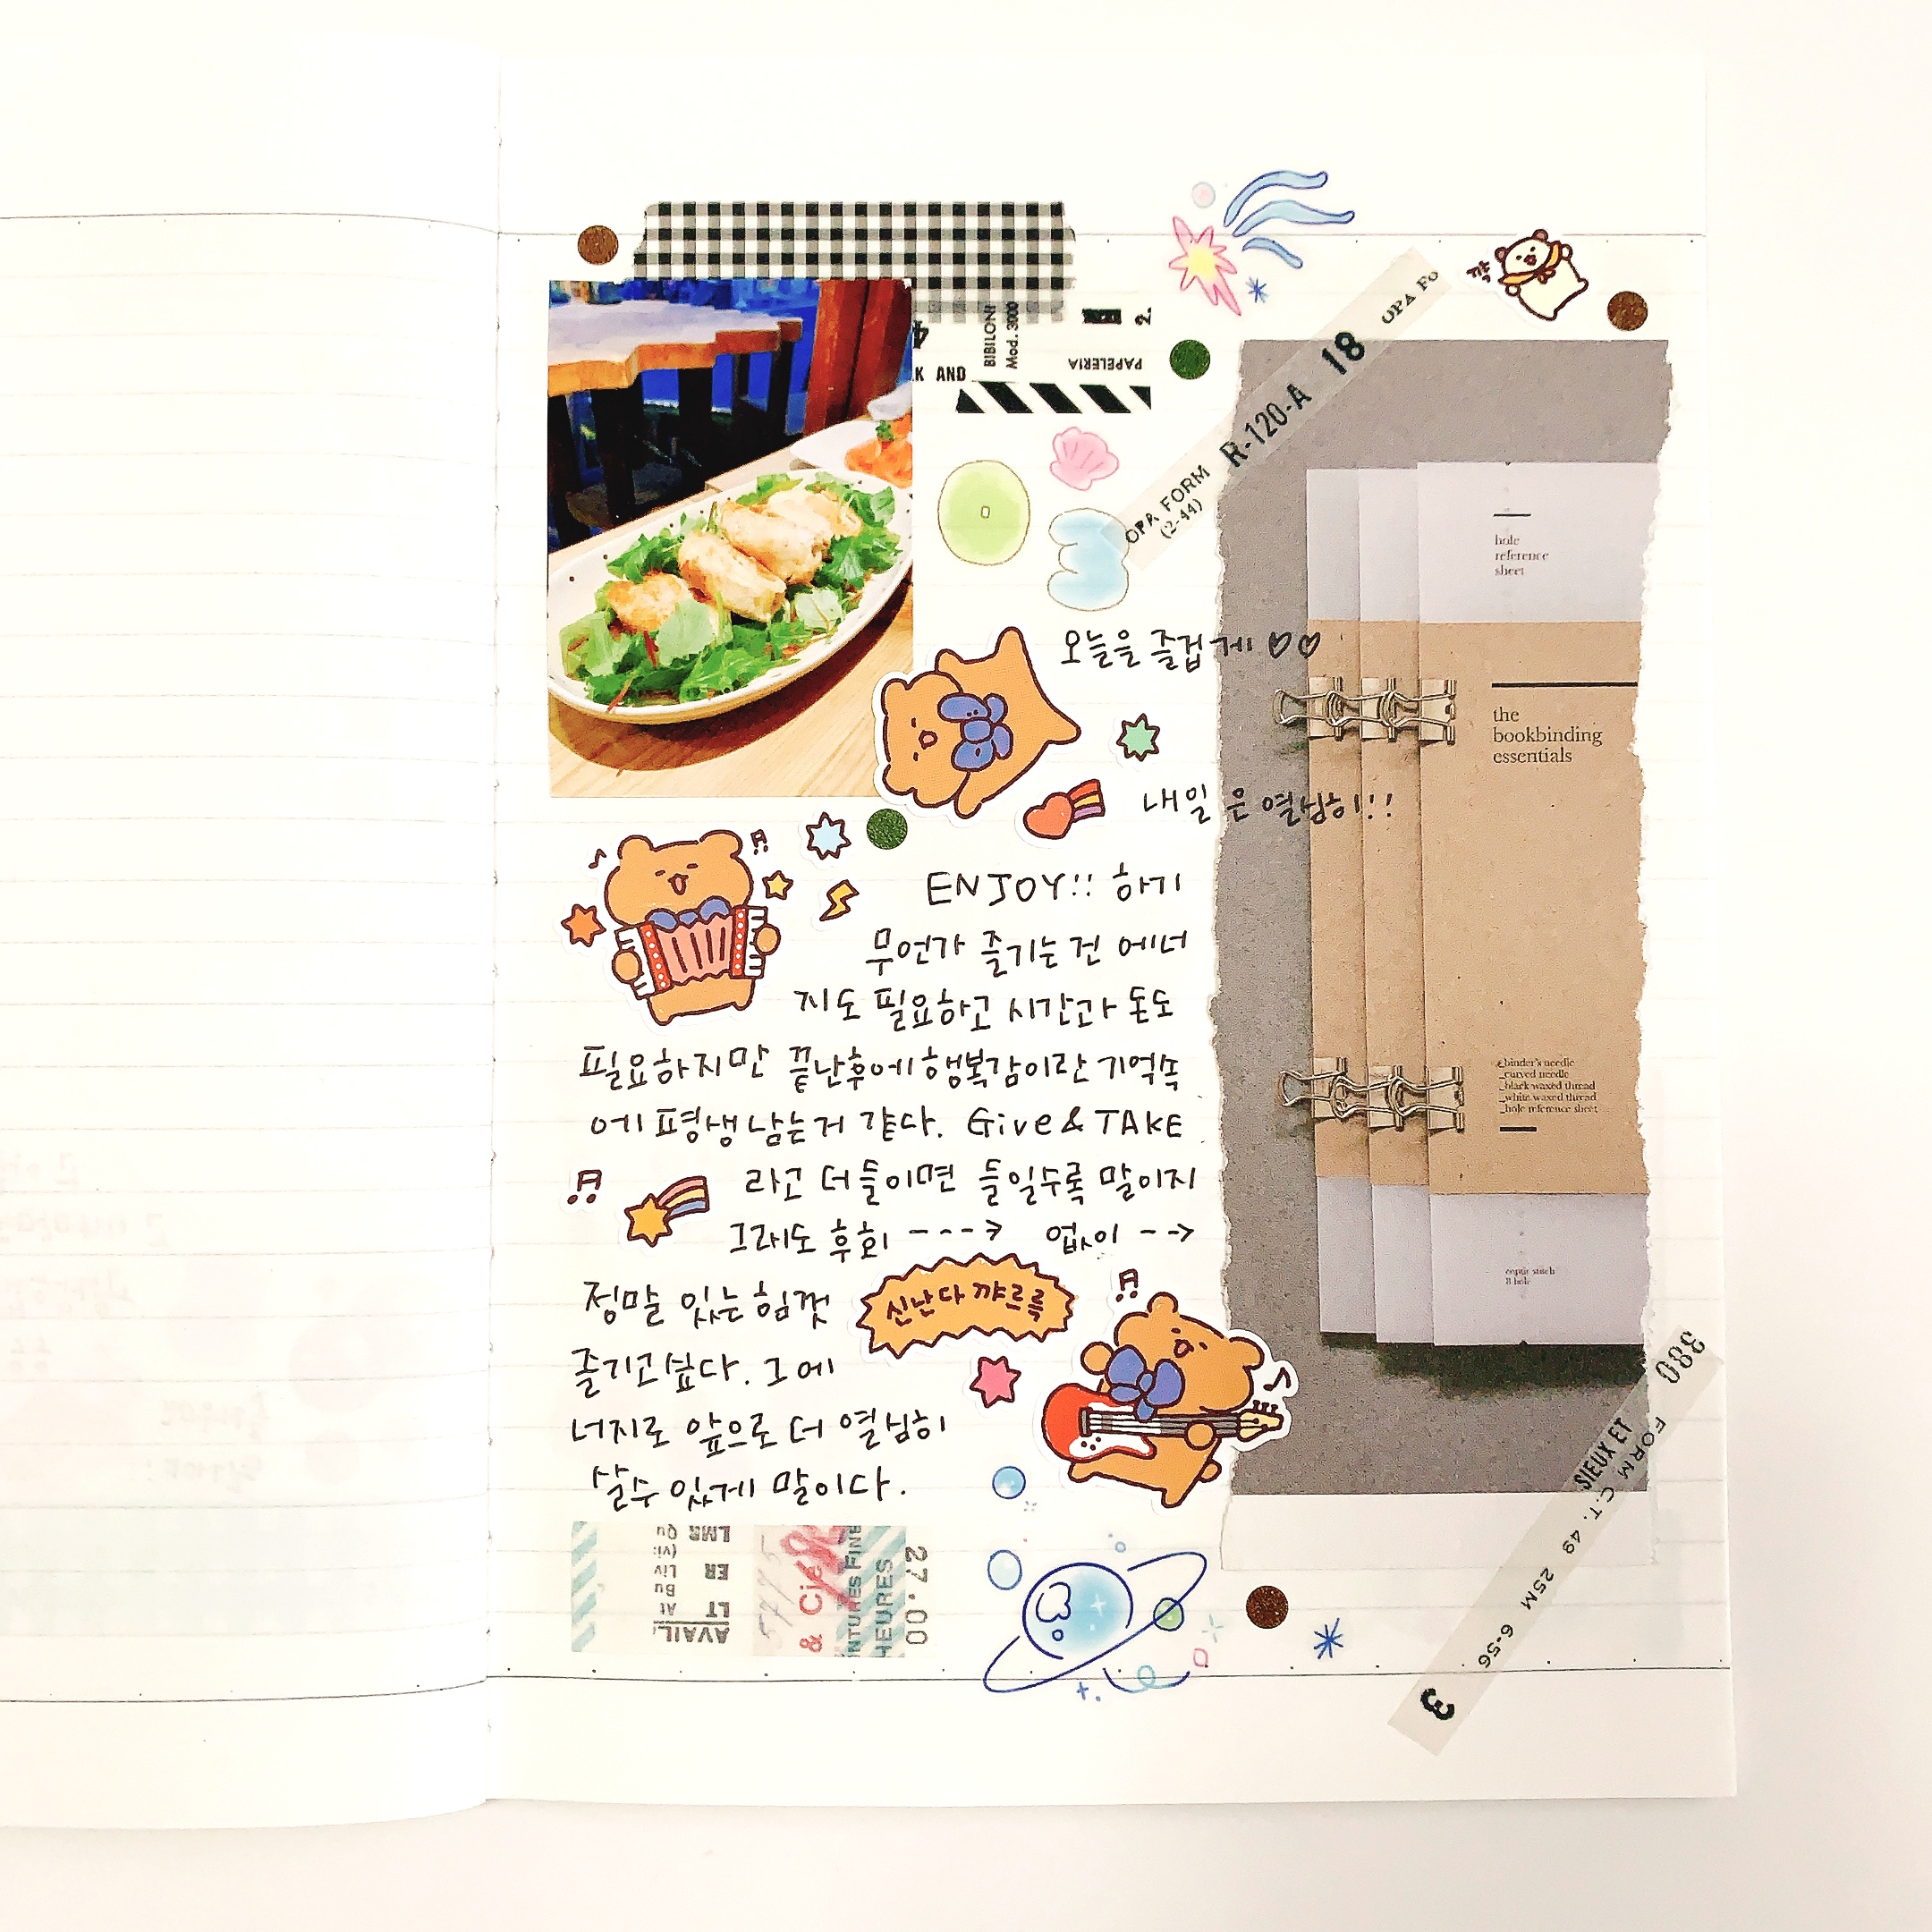 BIBILONI
Mod. 3000
2.
4
K AND
PAPELERIA
OPA FORM
(2-44)
R-120-A
18
OPA FO
hole
reference
sheet
오늘을 즐겁게 ♡♡
the
bookbinding
essentials
내일은 열심히!!
ENJOY!! 하기
무언가 즐기는건 에너
지도 필요하고 시간과 돈도
필요하지만 끝난후에 행복감이란 기억속
에 평생남는거 같다. Give & TAKE
라고 더 들이면 들일수록 말이지
그래도 후회 ---> 없이 -->
정말 있는힘껏
신난다 꺄르륵
즐기고싶다. 그에
너지로 앞으로 더 열심히
살수 있게 말이다.
_binder's needle
_curved needle
_black waxed thread
_white waxed thread
_hole reference sheet
coptic stitch
8 hole
AVAIL.
LT
At
Bu
ER
Liv
(vi:
LMR
Qu
& Cie
NTURES FINE
HEURES
27.00
380
SIEUX ET
FORM C.T. 49 25M 6-56
3